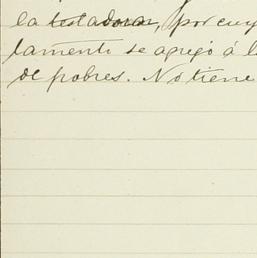 la testadora, por cuy
tamento se agregó á l
de pobres. No tiene